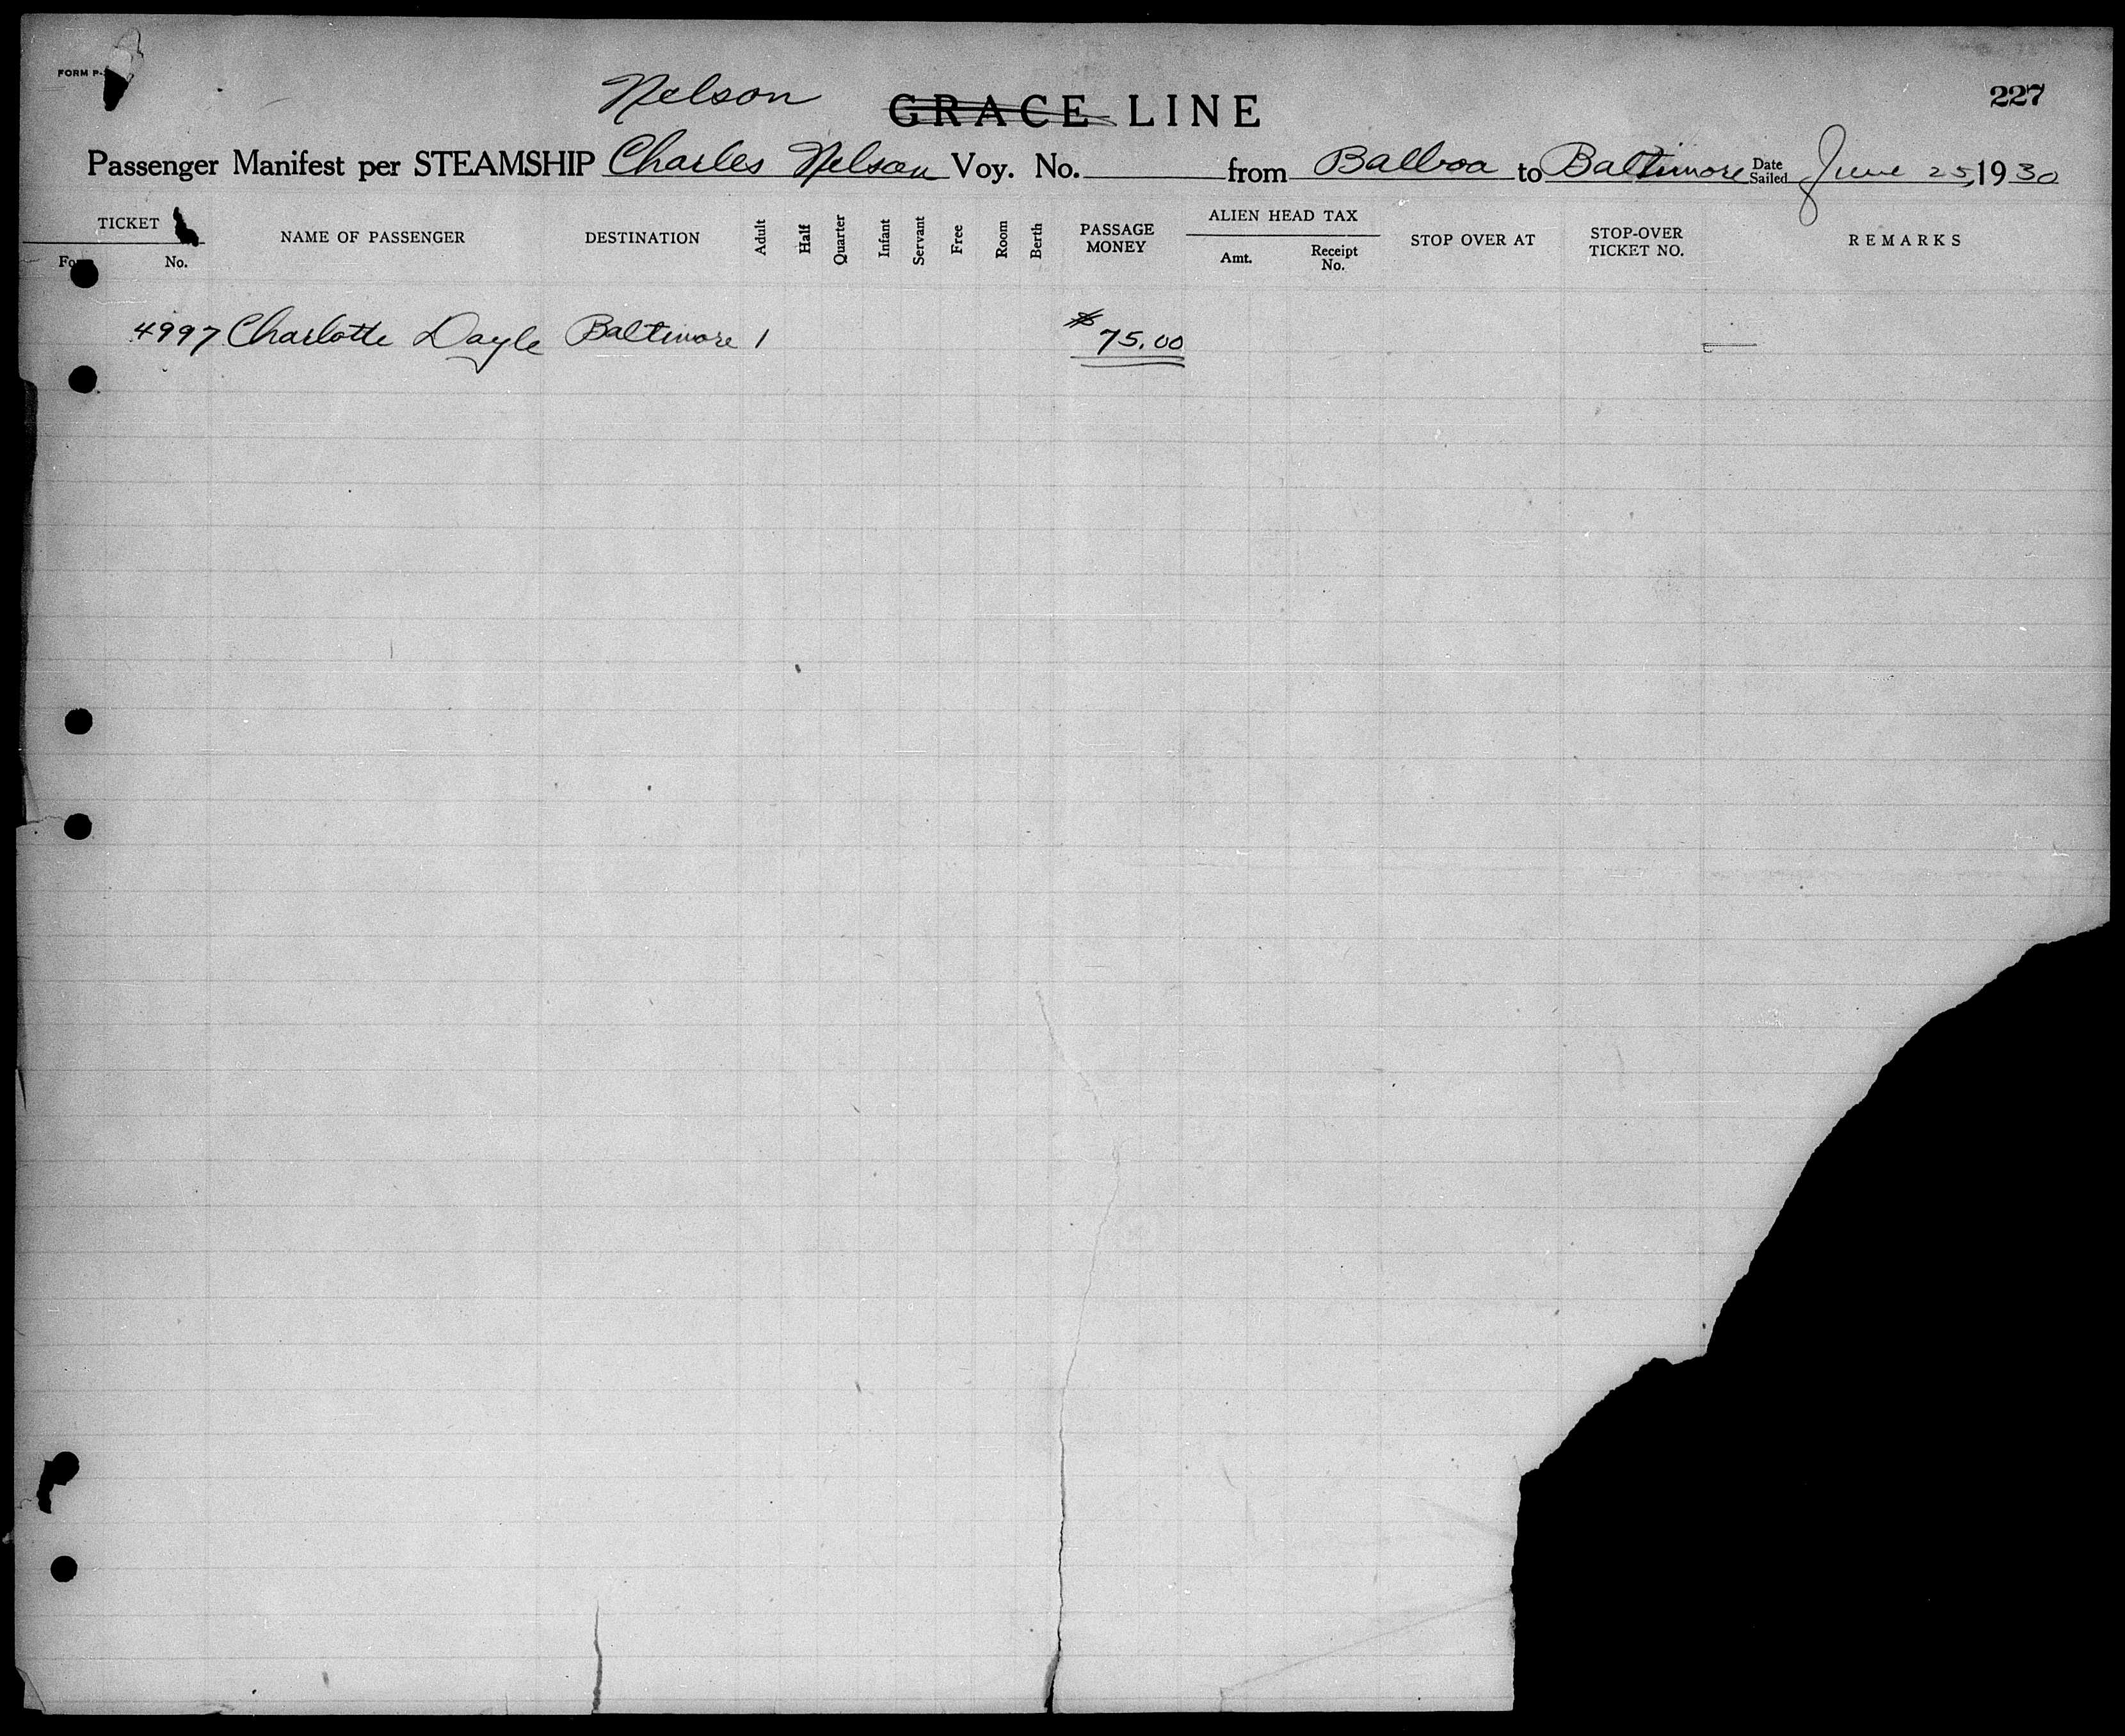 FORM P-
227
Nelson GRACE LINE
Passenger Manifest per STEAMSHIP Charles Nelson Voy. No. from Balboa to Baltimore Date Sailed June 25, 1930
TICKET
Form No.
NAME OF PASSENGER
DESTINATION
Adult
Half
Quarter
Infant
Servant
Free
Room
Berth
PASSAGE
MONEY
ALIEN HEAD TAX
Amt.
Receipt
No.
STOP OVER AT
STOP-OVER
TICKET NO.
REMARKS
4997 Charlotte Dayle Baltimore 1 $75.00